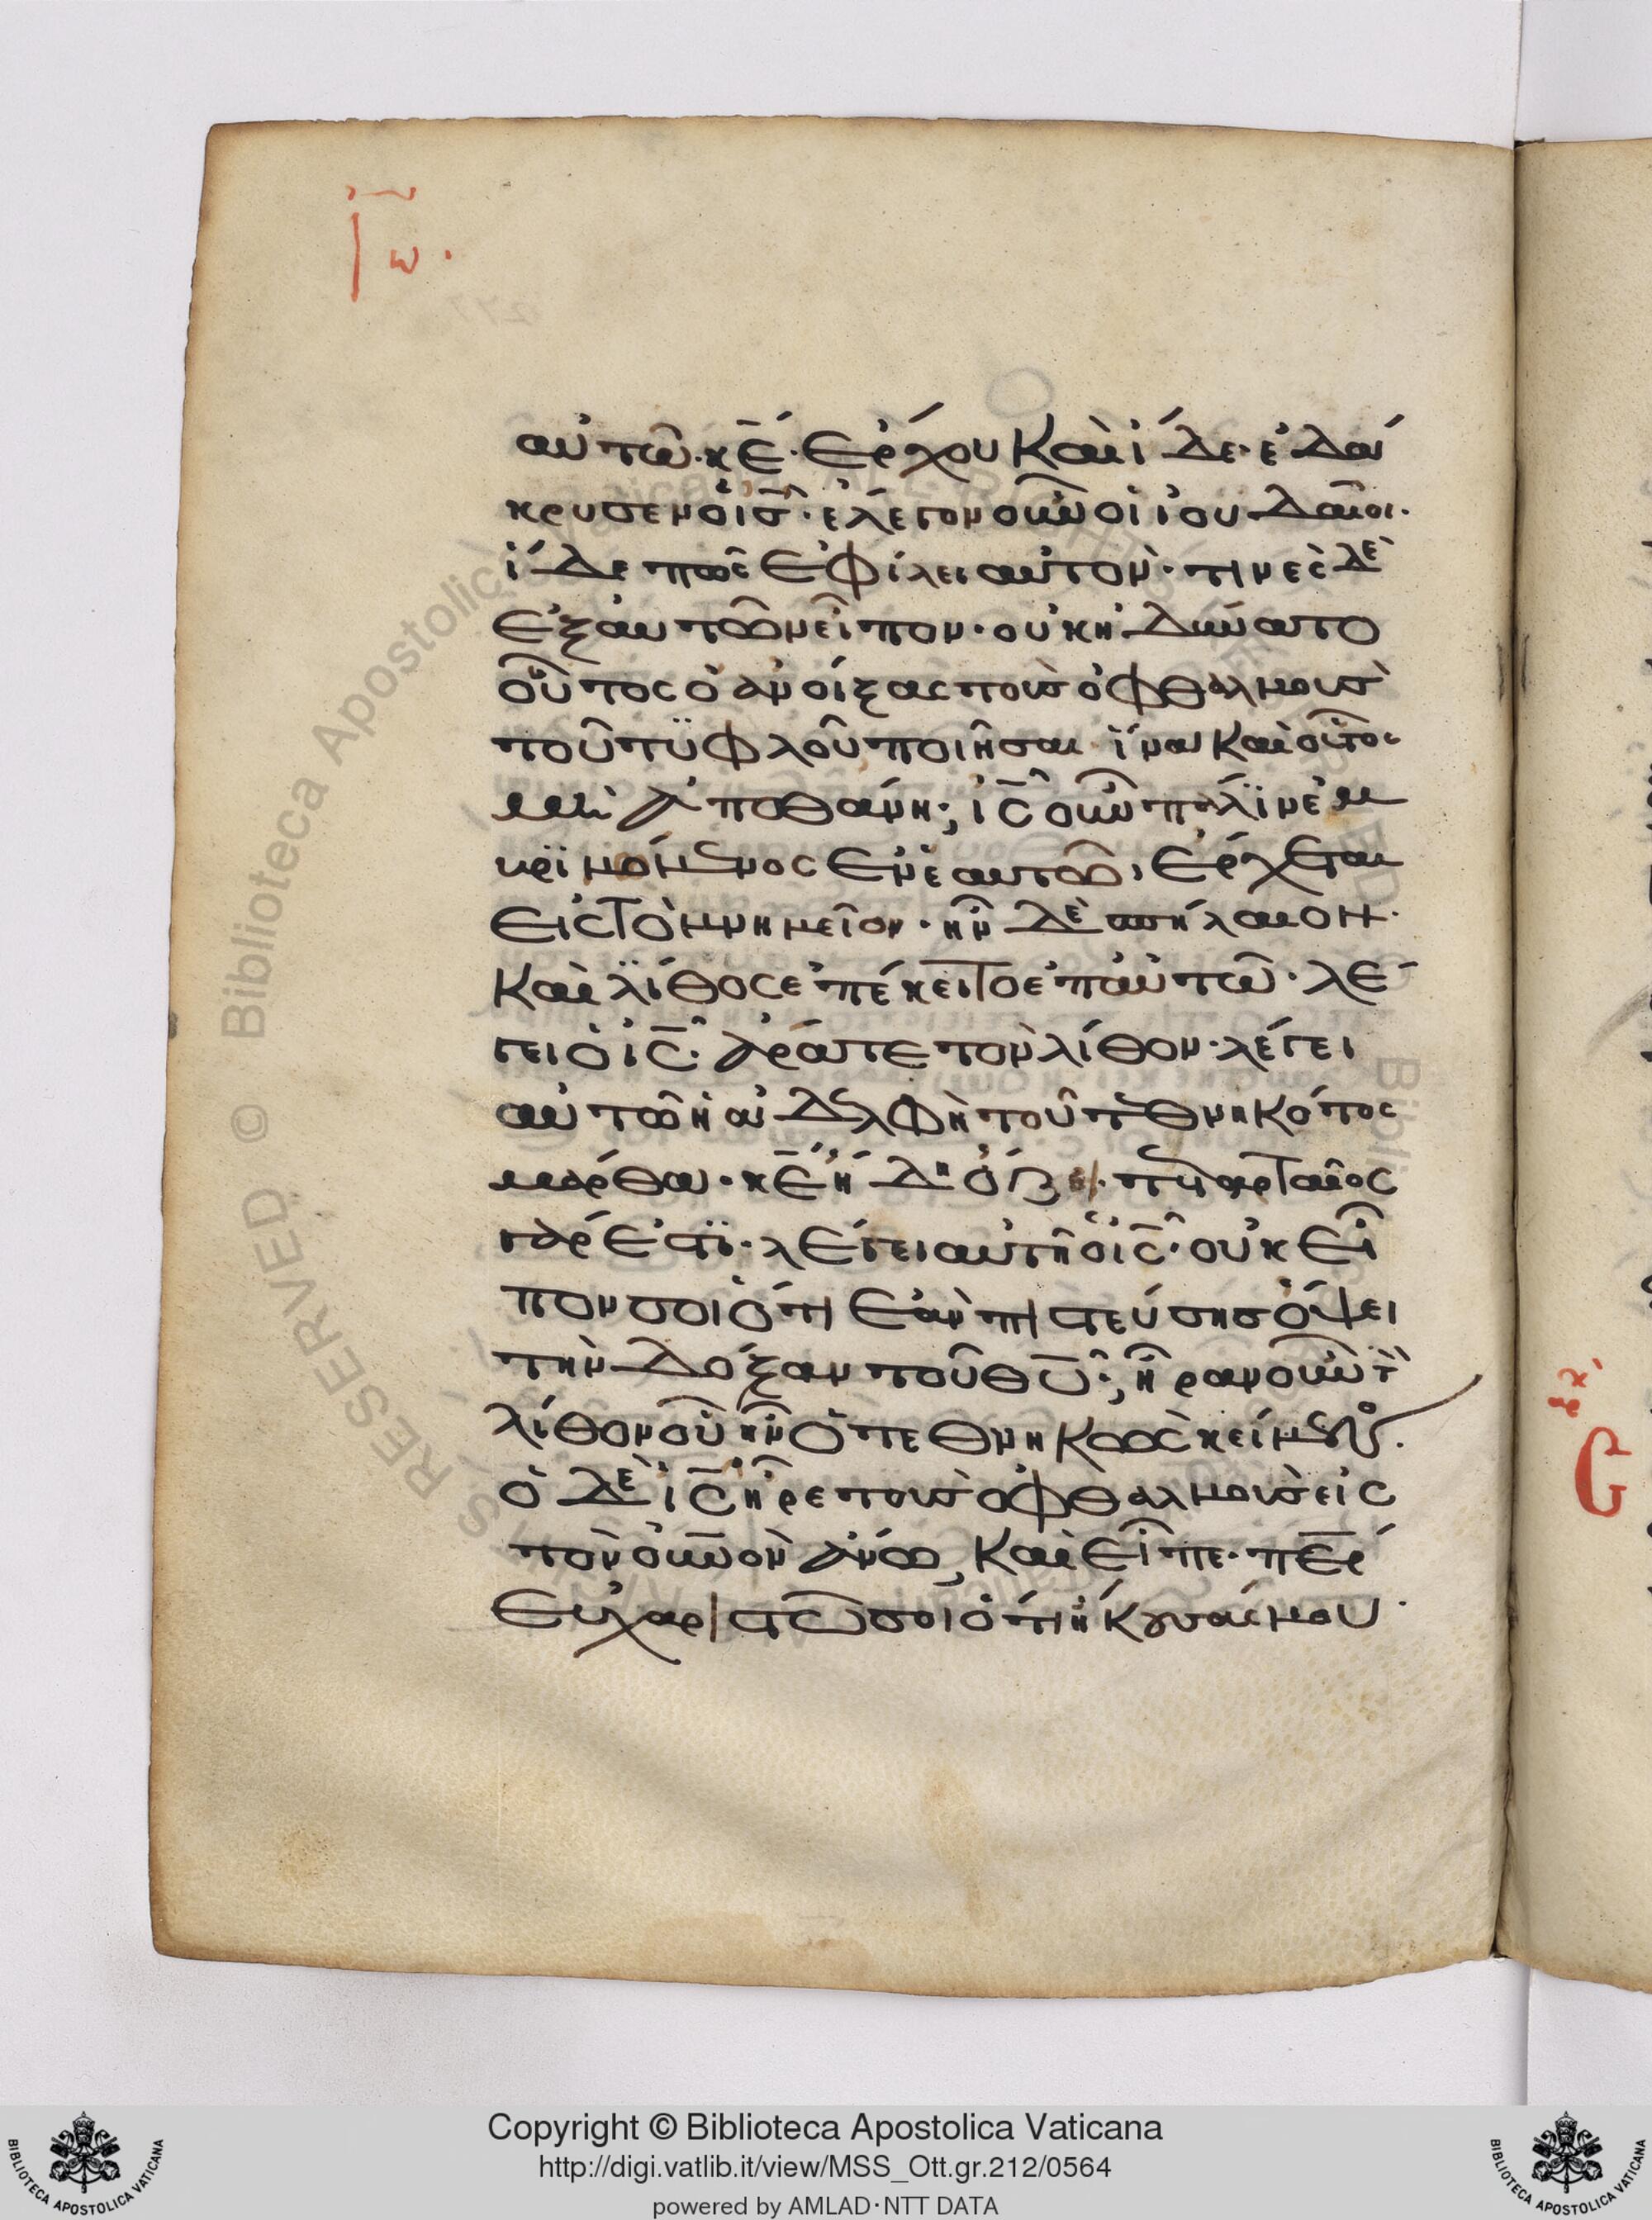 Ἰω.
αὐτῶ· κ̅ε̅· ἔρχου καὶ ἴδε· ἐδά
κρυσεν ὁ ι̅ς̅· ἔλεγον οὖν οἱ ἰουδαῖοι·
ἴδε πῶς ἐφίλει αὐτόν· τινὲς δὲ
ἐξ αὐτῶν εἶπον· οὐκ ἠδύνατο
οὗτος ὁ ἀνοίξας τοὺς ὀφθαλμοὺς
τοῦ τυφλοῦ ποιῆσαι ἵνα καὶ οὗτος
μὴ ἀποθάνη; ι̅ς̅ οὖν πάλιν ἐμ
βριμώμενος ἐν ἑαυτῶ, ἔρχεται
εἰς τὸ μνημεῖον· ἦν δὲ σπήλαιον·
καὶ λίθος ἐπέκειτο ἐπ αὐτῶ· λέ
γει ὁ ι̅ς̅· ἄρατε τὸν λίθον· λέγει
αὐτῶ ἡ ἀδελφὴ τοῦ τεθνηκότος
μάρθα· κ̅ε̅ ἤδη ὄζει· τεταρταῖος
γάρ ἐστι· λέγει αὐτῆ ὁ ι̅ς̅· οὐκ εἶ
πόν σοι ὅτι ἐὰν πιστεύσης ὄψει
τὴν δόξαν τοῦ θ̅υ̅; ἦραν οὖν τὸν
λίθον οὗ ἦν ὁ τεθνηκὼς κείμενος·
ὁ δὲ ι̅ς̅ ἦρε τοὺς ὀφθαλμοὺς εἰς
τὸν ο̅υ̅ν̅ο̅ν̅ ἄνω, καὶ εἶπε· π̅ε̅ρ̅
εὐχαριστῶ σοι ὅτι ἤκουσάς μου·
Copyright © Biblioteca Apostolica Vaticana
http://digi.vatlib.it/view/MSS_Ott.gr.212/0564
powered by AMLAD·NTT DATA